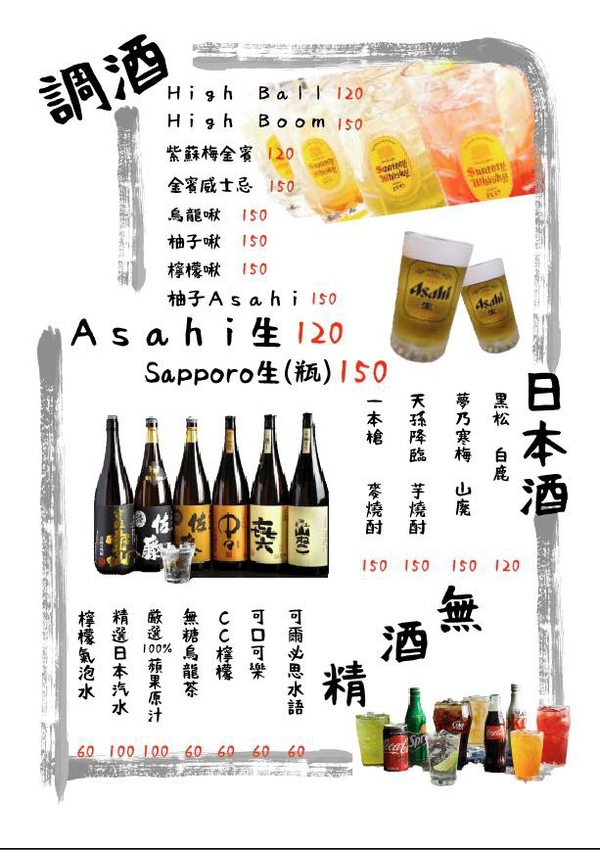 調酒
High Ball 120
High Boom 150
紫蘇梅金賓 120
金賓威士忌 150
烏龍啾 150
柚子啾 150
檸檬啾 150
柚子Asahi 150
Asahi生 120
Sapporo生(瓶) 150
Asahi
生
Asahi
生
日本酒
黑松 白鹿 120
夢乃寒梅 山廃 150
天孫降臨 芋燒酎 150
一本槍 麥燒酎 150
佐藤
無酒精
可爾必思水語 60
可口可樂 60
CC檸檬 60
無糖烏龍茶 60
嚴選100%蘋果原汁 100
精選日本汽水 100
檸檬氣泡水 60